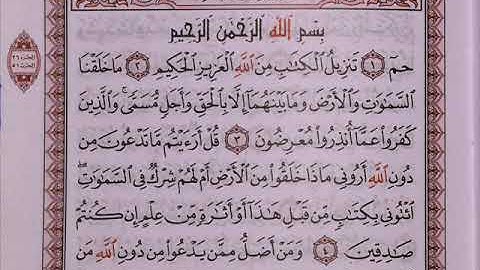 بِسْمِ اللَّهِ الرَّحْمَٰنِ الرَّحِيمِ
حمٓ ١ تَنزِيلُ الْكِتَابِ مِنَ اللَّهِ الْعَزِيزِ الْحَكِيمِ ٢ مَا خَلَقْنَا
السَّمَاوَاتِ وَالْأَرْضَ وَمَا بَيْنَهُمَا إِلَّا بِالْحَقِّ وَأَجَلٍ مُّسَمًّى ۚ وَالَّذِينَ
كَفَرُوا عَمَّا أُنذِرُوا مُعْرِضُونَ ٣ قُلْ أَرَءَيْتُم مَّا تَدْعُونَ مِن
دُونِ اللَّهِ أَرُونِي مَاذَا خَلَقُوا مِنَ الْأَرْضِ أَمْ لَهُمْ شِرْكٌ فِي السَّمَاوَاتِ ۖ
ائْتُونِي بِكِتَابٍ مِّن قَبْلِ هَٰذَا أَوْ أَثَارَةٍ مِّنْ عِلْمٍ إِن كُنتُمْ
صَادِقِينَ ٤ وَمَنْ أَضَلُّ مِمَّن يَدْعُوا مِن دُونِ اللَّهِ مَن